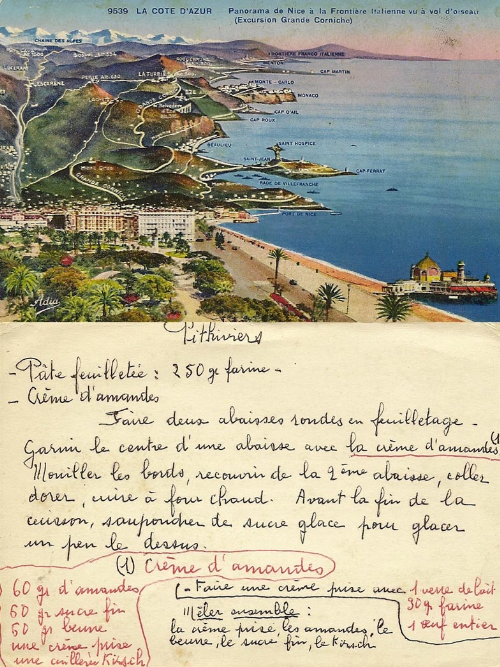 9539 LA COTE D'AZUR Panorama de Nice à la Frontière Italienne vu à vol d'oiseau
(Excursion Grande Corniche)
CHAINE DES ALPES
FRONTIERE FRANCO ITALIENNE
MENTON
CAP MARTIN
LA TURBIE
MONTE-CARLO
MONACO
CAP D'AIL
CAP ROUX
BEAULIEU
SAINT HOSPICE
SAINT-JEAN
CAP-FERRAT
RADE DE VILLEFRANCHE
PORT DE NICE
Adia
Pithiviers
- Pâte feuilletée : 250 gr farine -
- Crème d'amandes
Faire deux abaisses rondes en feuilletage -
Garnir le centre d'une abaisse avec la crème d'amandes (1)
Mouiller les bords, recouvrir de la 2ème abaisse, coller
dorer, cuire à four chaud. Avant la fin de la
cuisson, saupoudrer de sucre glace pour glacer
un peu le dessus.
(1) Crème d'amandes
60 gr d'amandes
60 gr sucre fin
50 gr beurre
une crème prise
une cuillerée Kirsch
- Faire une crème prise avec 1 verre de lait
30 gr farine
1 œuf entier
Mêler ensemble :
la crème prise, les amandes, le
beurre, le sucre fin, le Kirsch